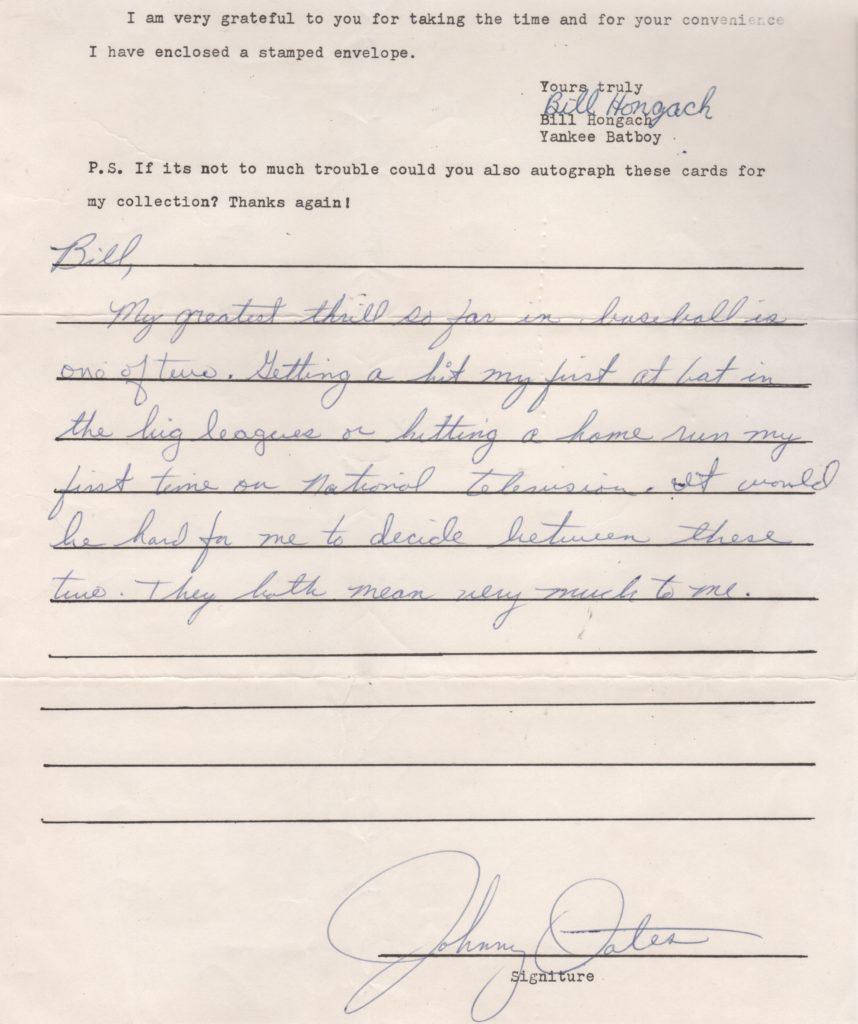 I am very grateful to you for taking the time and for your convenience
I have enclosed a stamped envelope.
Yours truly
Bill Hongach
Bill Hongach
Yankee Batboy
P.S. If its not to much trouble could you also autograph these cards for
my collection? Thanks again!
Bill,
My greatest thrill so far in baseball is
one of two. Getting a hit my first at bat in
the big leagues or hitting a home run my
first time on National television. It would
be hard for me to decide between these
two. They both mean very much to me.
Johnny Oates
Signiture